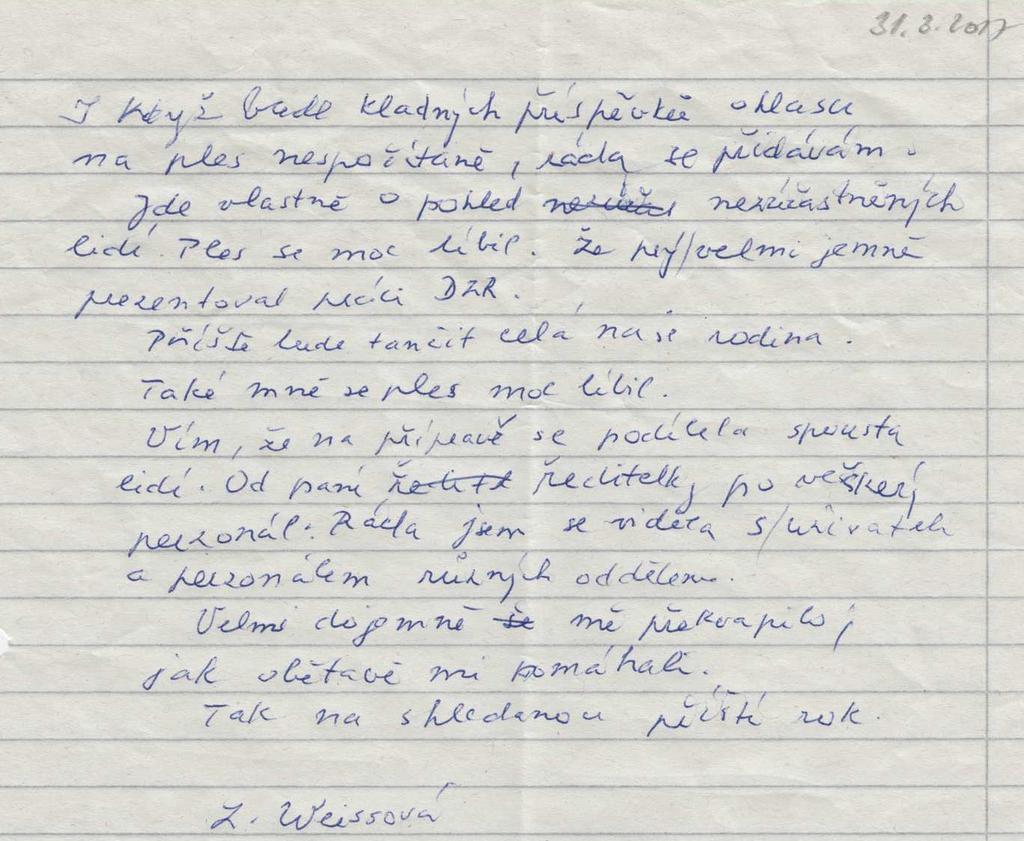 31.3.2017
I když bude kladných příspěvků ohlasu
na ples nespočítaně, ráda se přidávám.
Jde vlastně o pohled nezúčas nezúčastněných
lidí. Ples se moc líbil. Že prý velmi jemně
prezentoval práci DZR.
Příště bude tančit celá naše rodina.
Také mně se ples moc líbil.
Vím, že na přípravě se podílela spousta
lidí. Od paní ředitelky po veškerý
personál. Ráda jsem se viděla s uživateli
a personálem různých oddělení.
Velmi dojemně še mě překvapilo,
jak obětavě mi pomáhali.
Tak na shledanou příští rok.
Z. Weissová